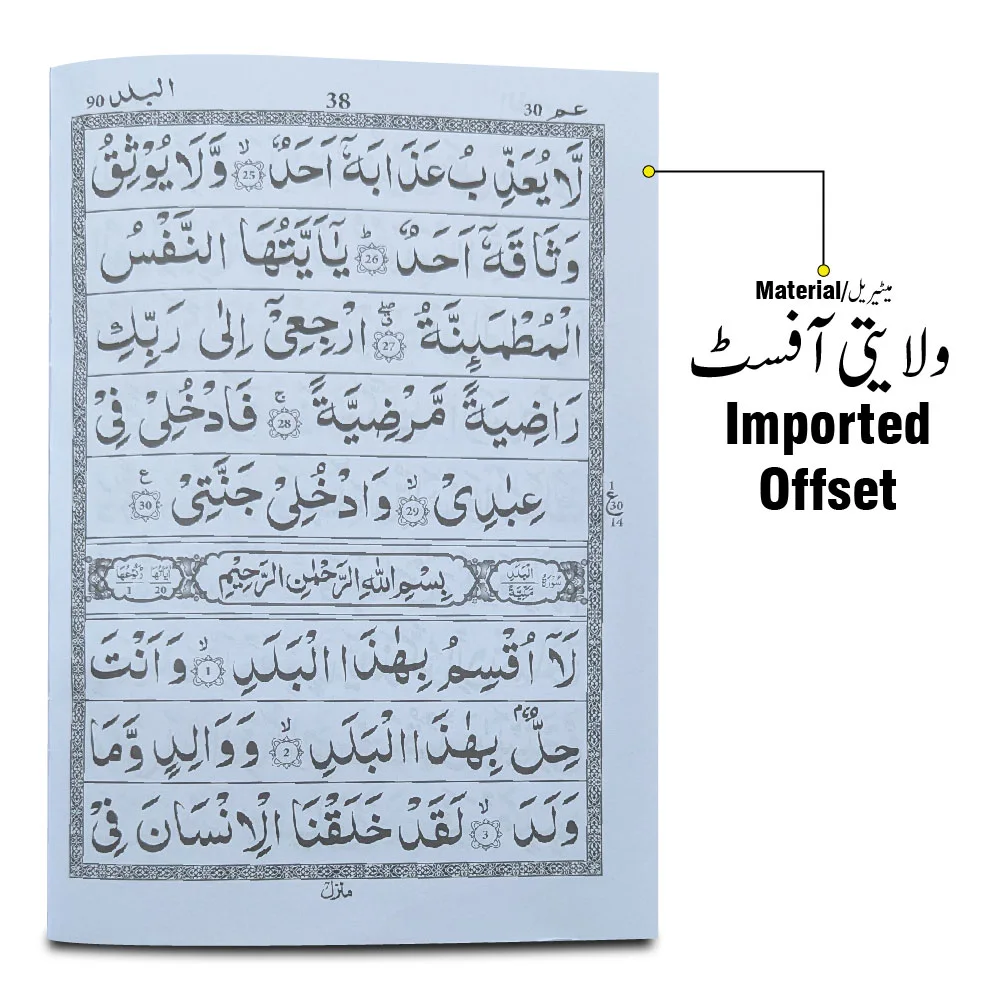 البلد 90
38
عم 30
لَّا يُعَذِّبُ عَذَابَهٗۤ اَحَدٌ ۙ 25 وَّلَا يُوْثِقُ
وَثَاقَهٗۤ اَحَدٌ ؕ 26 يٰۤاَيَّتُهَا النَّفْسُ
الْمُطْمَىِٕنَّةُ 27 ارْجِعِیْۤ اِلٰى رَبِّكِ
رَاضِيَةً مَّرْضِيَّةً ۚ 28 فَادْخُلِیْ فِیْ
عِبٰدِیْ ۙ 29 وَادْخُلِیْ جَنَّتِیْ 30
1
ع
30
14
سُوْرَةُ الْبَلَدِ مَكِّيَّةٌ
بِسْمِ اللّٰهِ الرَّحْمٰنِ الرَّحِيْمِ
اٰيَاتُهَا 20 رُكُوْعُهَا 1
لَاۤ اُقْسِمُ بِهٰذَا الْبَلَدِ ۙ 1 وَاَنْتَ
حِلٌّۢ بِهٰذَا الْبَلَدِ ۙ 2 وَوَالِدٍ وَّمَا
وَلَدَ ۙ 3 لَقَدْ خَلَقْنَا الْاِنْسَانَ فِیْ
منزل
Material/میٹیریل
ولایتی آفسٹ
Imported
Offset